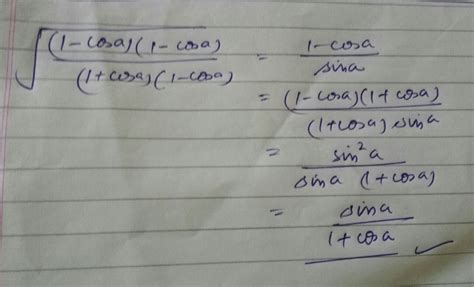 √((1-cosa)(1-cosa) / (1+cosa)(1-cosa)) = (1-cosa) / sina
= (1-cosa)(1+cosa) / (1+cosa) sina
= sin²a / sina (1+cosa)
= sina / 1+cosa ✓